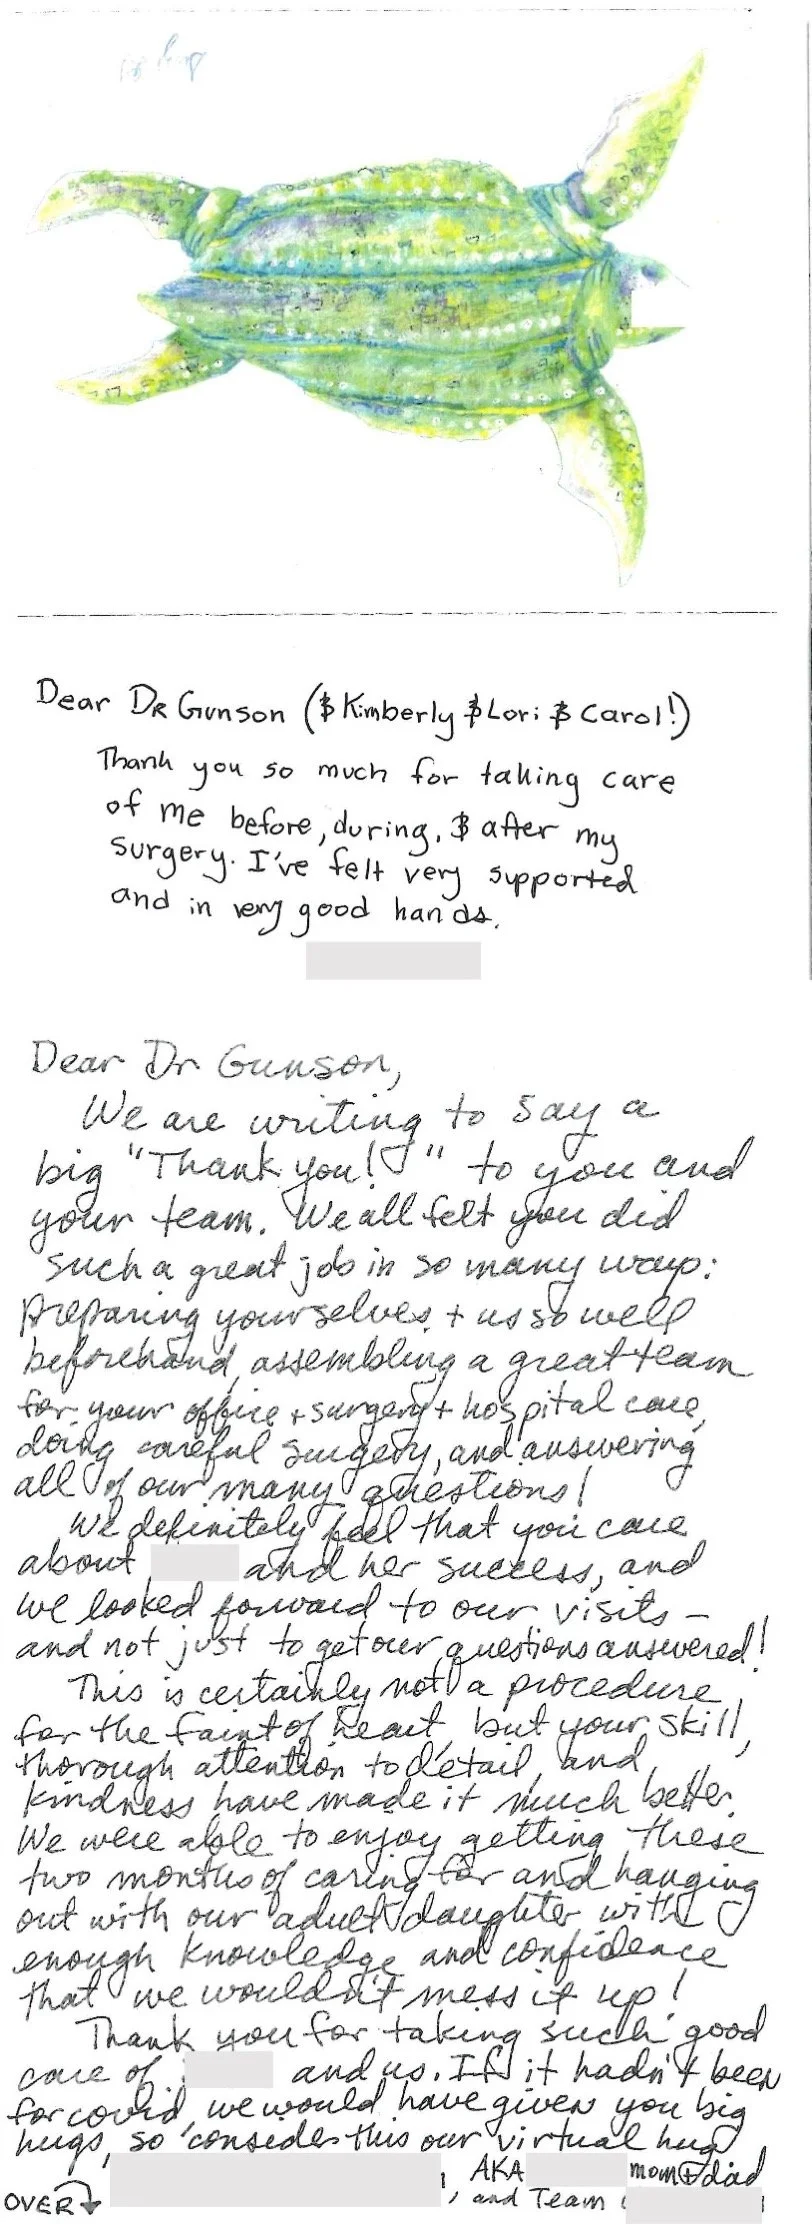 Dear Dr Gunson ( & Kimberly & Lori & Carol!)
Thank you so much for taking care
of me before, during, & after my
surgery. I've felt very supported
and in very good hands.
Dear Dr Gunson,
We are writing to say a
big "Thank you!" to you and
your team. We all felt you did
such a great job in so many ways:
preparing yourselves + us so well
beforehand, assembling a great team
for your office + surgery + hospital care,
doing careful surgery, and answering
all of our many questions!
We definitely feel that you care
about and her success, and
we looked forward to our visits –
and not just to get our questions answered!
This is certainly not a procedure
for the faint of heart, but your skill,
thorough attention to detail, and
kindness have made it much better.
We were able to enjoy getting these
two months of caring for and hanging
out with our adult daughter with
enough knowledge and confidence
that we wouldn't mess it up!
Thank you for taking such good
care of and us. If it hadn't been
for covid, we would have given you big
hugs, so consider this our virtual hug
, AKA mom + dad
OVER , and Team